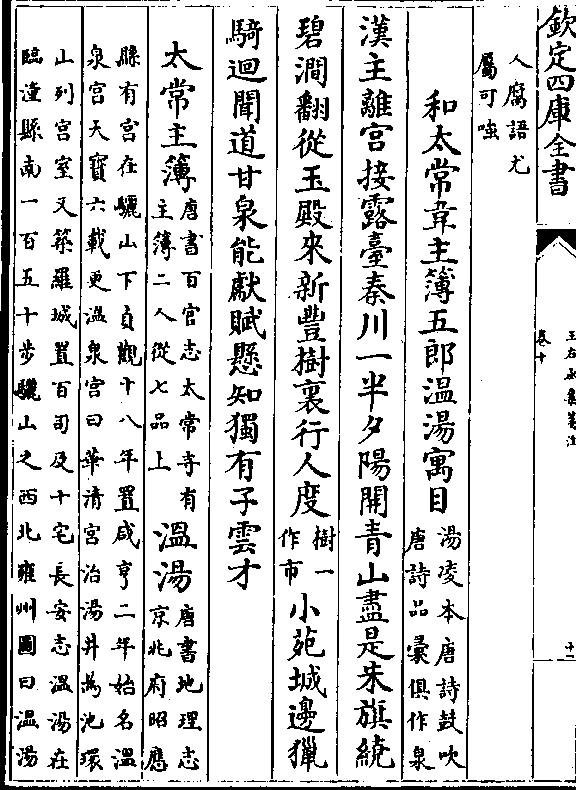 欽定四庫全書
王右丞集箋注
卷十
十一
人腐語尤
屬可嗤
和太常韋主簿五郎温湯寓目
湯凌本唐詩鼓吹
唐詩品彙俱作泉
漢主離宮接露臺秦川一半夕陽開青山盡是朱旗繞
碧澗翻從玉殿來新豐樹裏行人度
樹一
作市
小苑城邊獵
騎迴聞道甘泉能獻賦懸知獨有子雲才
太常主簿
唐書百官志太常寺有
主簿二人從七品上
温湯
唐書地理志
京兆府昭應
縣有宮在驪山下貞觀十八年置咸亨二年始名温
泉宮天寶六載更温泉宮曰華清宮治湯井為池環
山列宮室又築羅城置百司及十宅長安志温湯在
臨潼縣南一百五十步驪山之西北雍州圖曰温湯